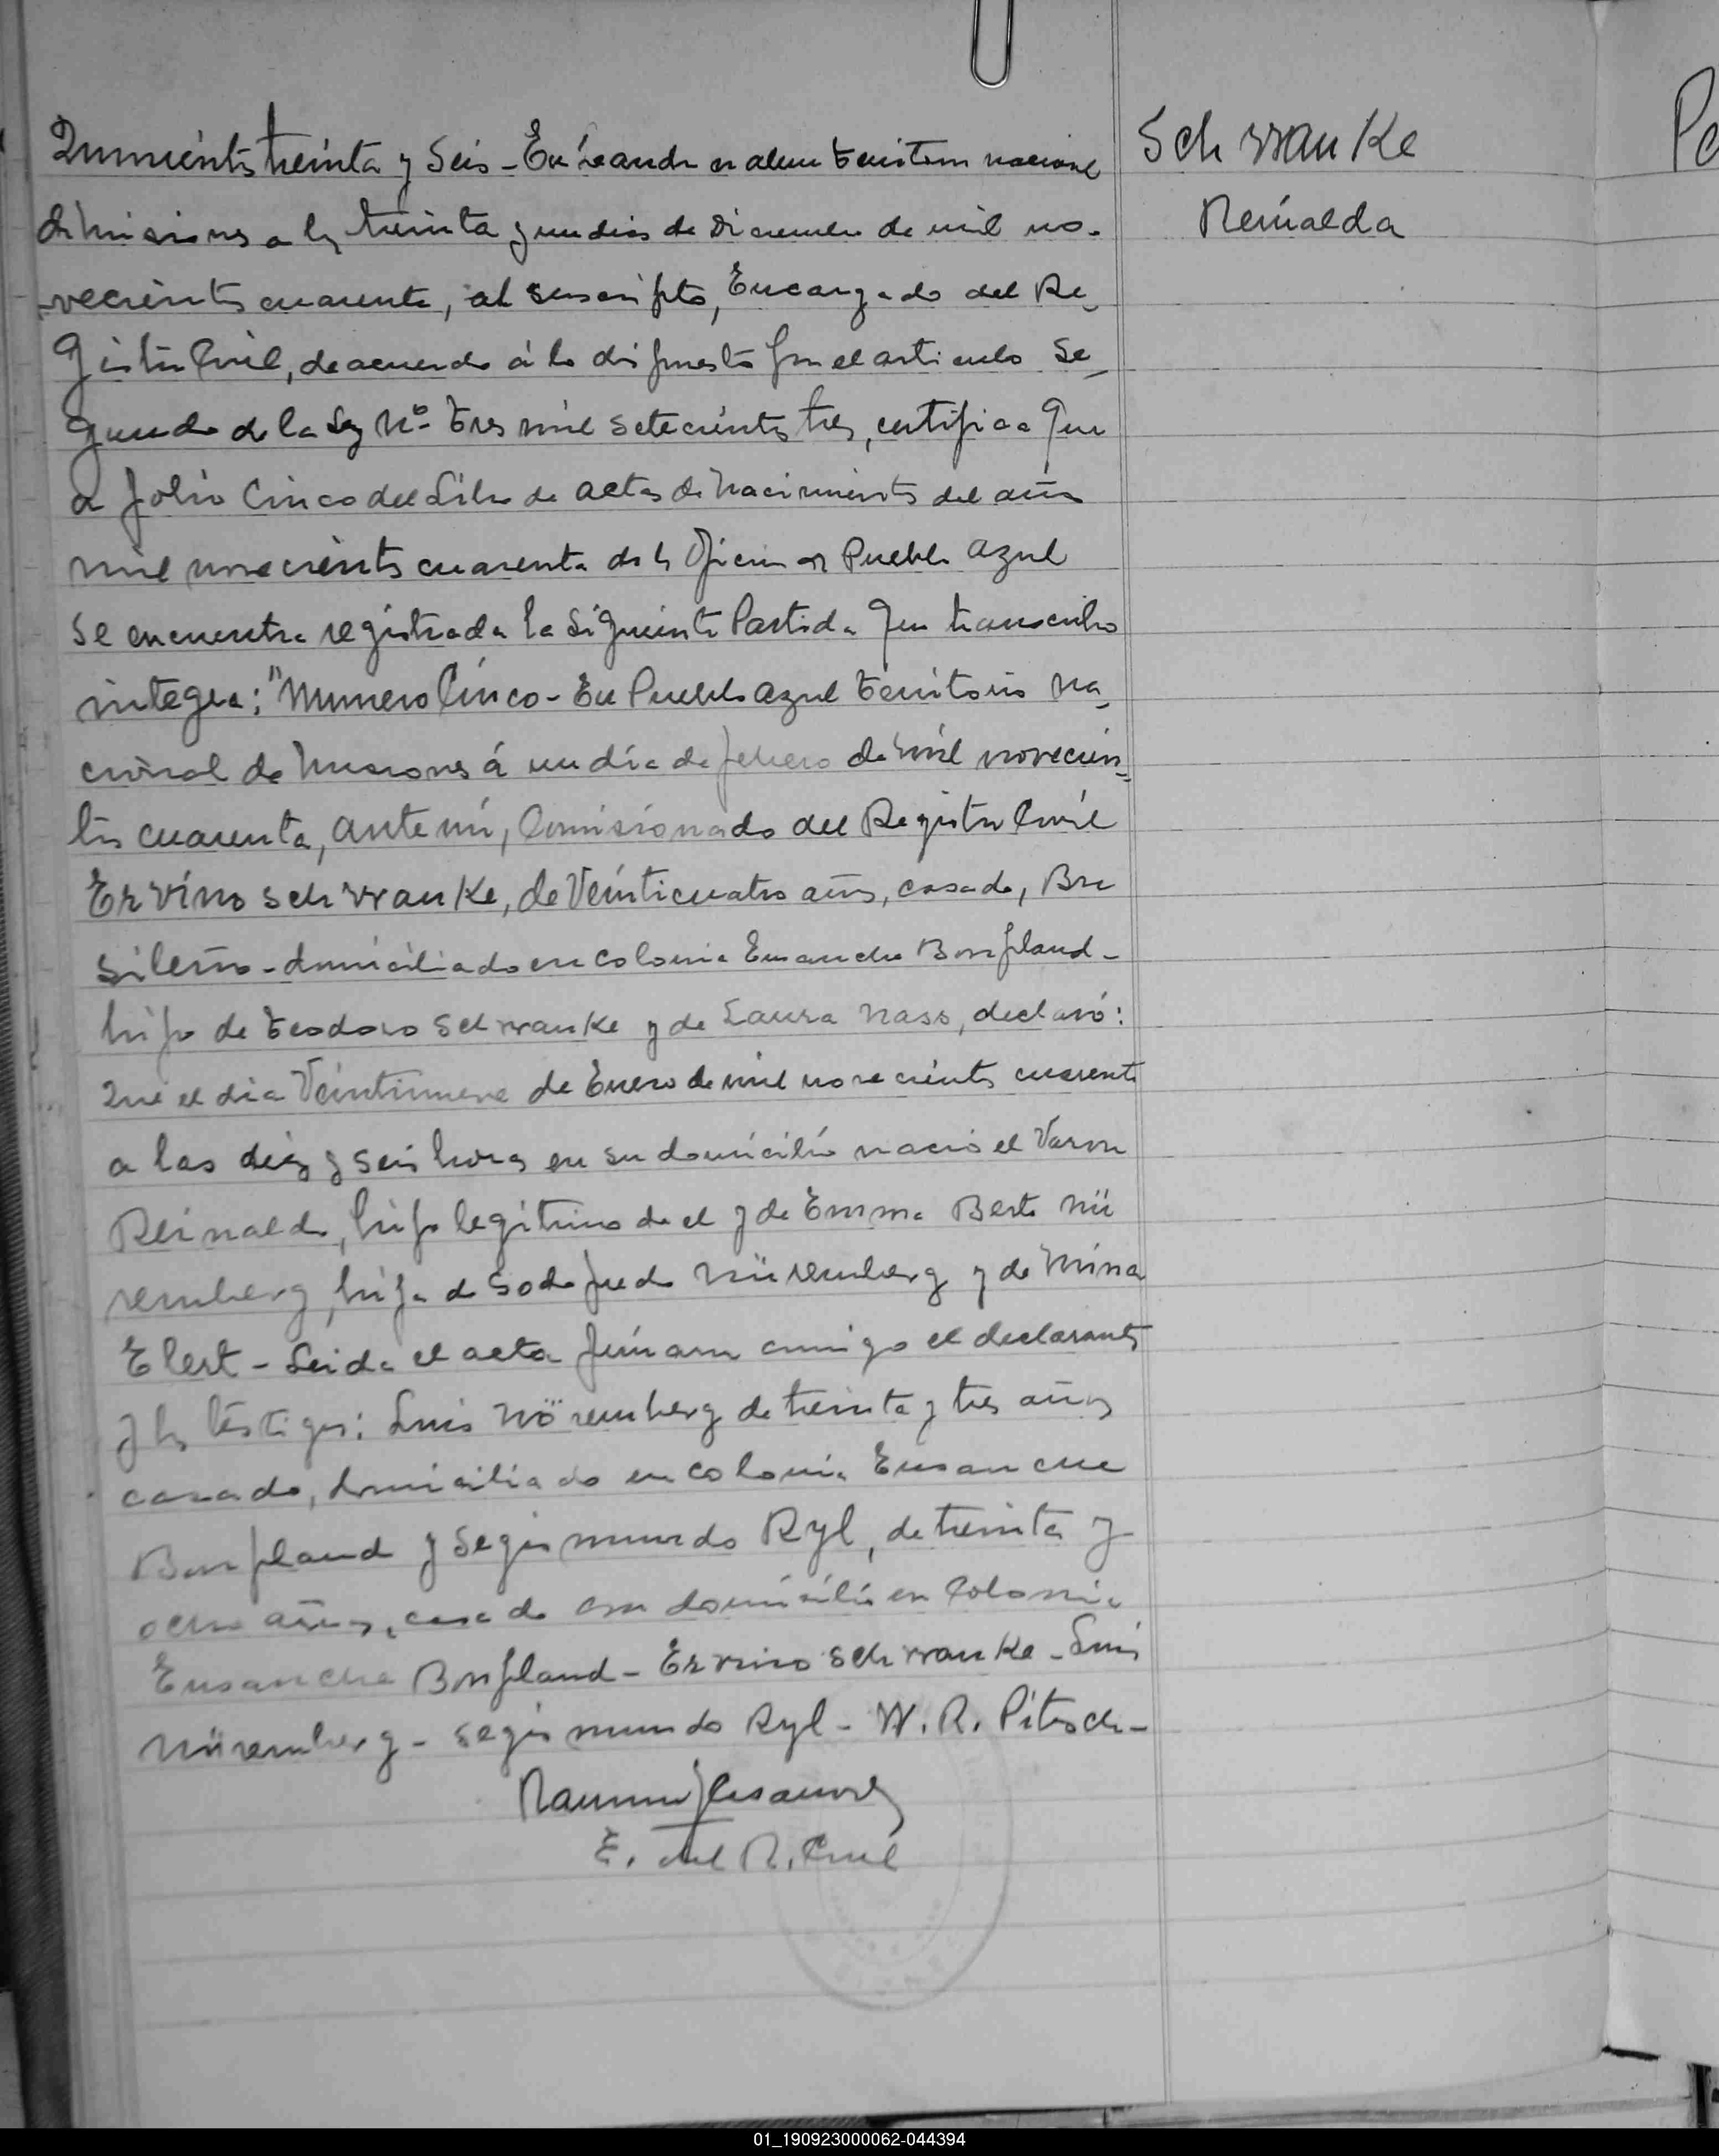 Quinientos treinta y Seis - En Leandro n alem territorio nacional
Schwanke
de misiones a los treinta y un dias de Diciembre de mil no-
Reinalda
vecientos cuarenta, el suscripto, Encargado del Re-
gistro Civil, de acuerdo á lo dispuesto por el articulo Se-
gundo de la Ley Nº tres mil setecientos tres, certifica que
a folio Cinco del Libro de actas de Nacimientos del año
mil novecientos cuarenta de la Oficina de Pueblo azul
se encuentra registrada la siguiente Partida que transcribo
integra: "Numero Cinco - En Pueblo azul territorio Na-
cional de Misiones á un día de febrero de mil novecien-
tos cuarenta, ante mi, Comisionado del Registro Civil
Ervino Schwanke, de Veinticuatro años, casado, Bra
sileño - domiciliado en colonia Ensanche Bonpland -
hijo de teodoro Schwanke y de Laura Nass, declaró:
Que el dia Veintinueve de Enero de mil novecientos cuarenta
a las diez y seis horas en su domicilio nació el Varon
Reinaldo, hijo legitimo de el y de Emma Berta Nü
remberg, hija de Godofredo Nüremberg y de Mina
Elert - Leida el acta firmaron conmigo el declarante
y los testigos: Luis Nöremberg de treinta y tres años
casado, domiciliado en colonia Ensanche
Bonpland y Segismundo Ryl, de treinta y
ocho años, casado con domicilio en Colonia
Ensanche Bonpland - Ervino Schwanke - Luis
Nüremberg - Segismundo Ryl - W. R. Pitsch -
E. del R. Civil
01_190923000062-044394